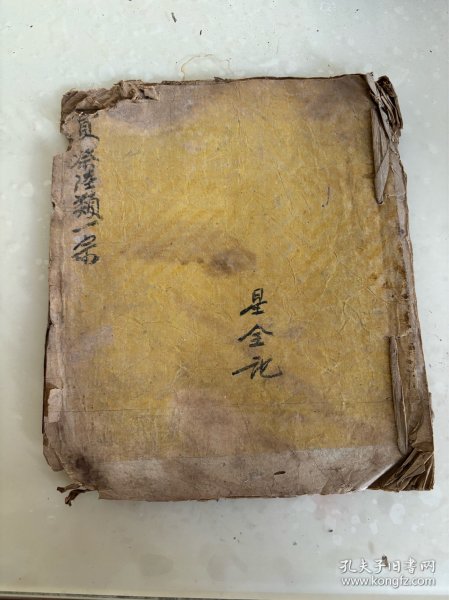 類一宗
星全記
孔夫子旧书网
www.kongfz.com